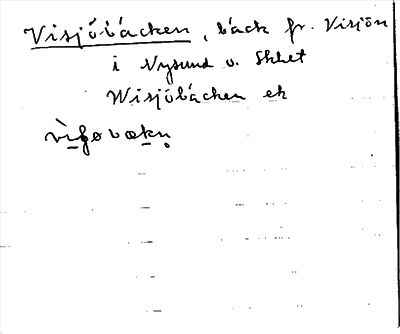 Visjöbäcken, bäck fr. Visjön
i Nysund o. Skhet
Wisjöbäcken ek